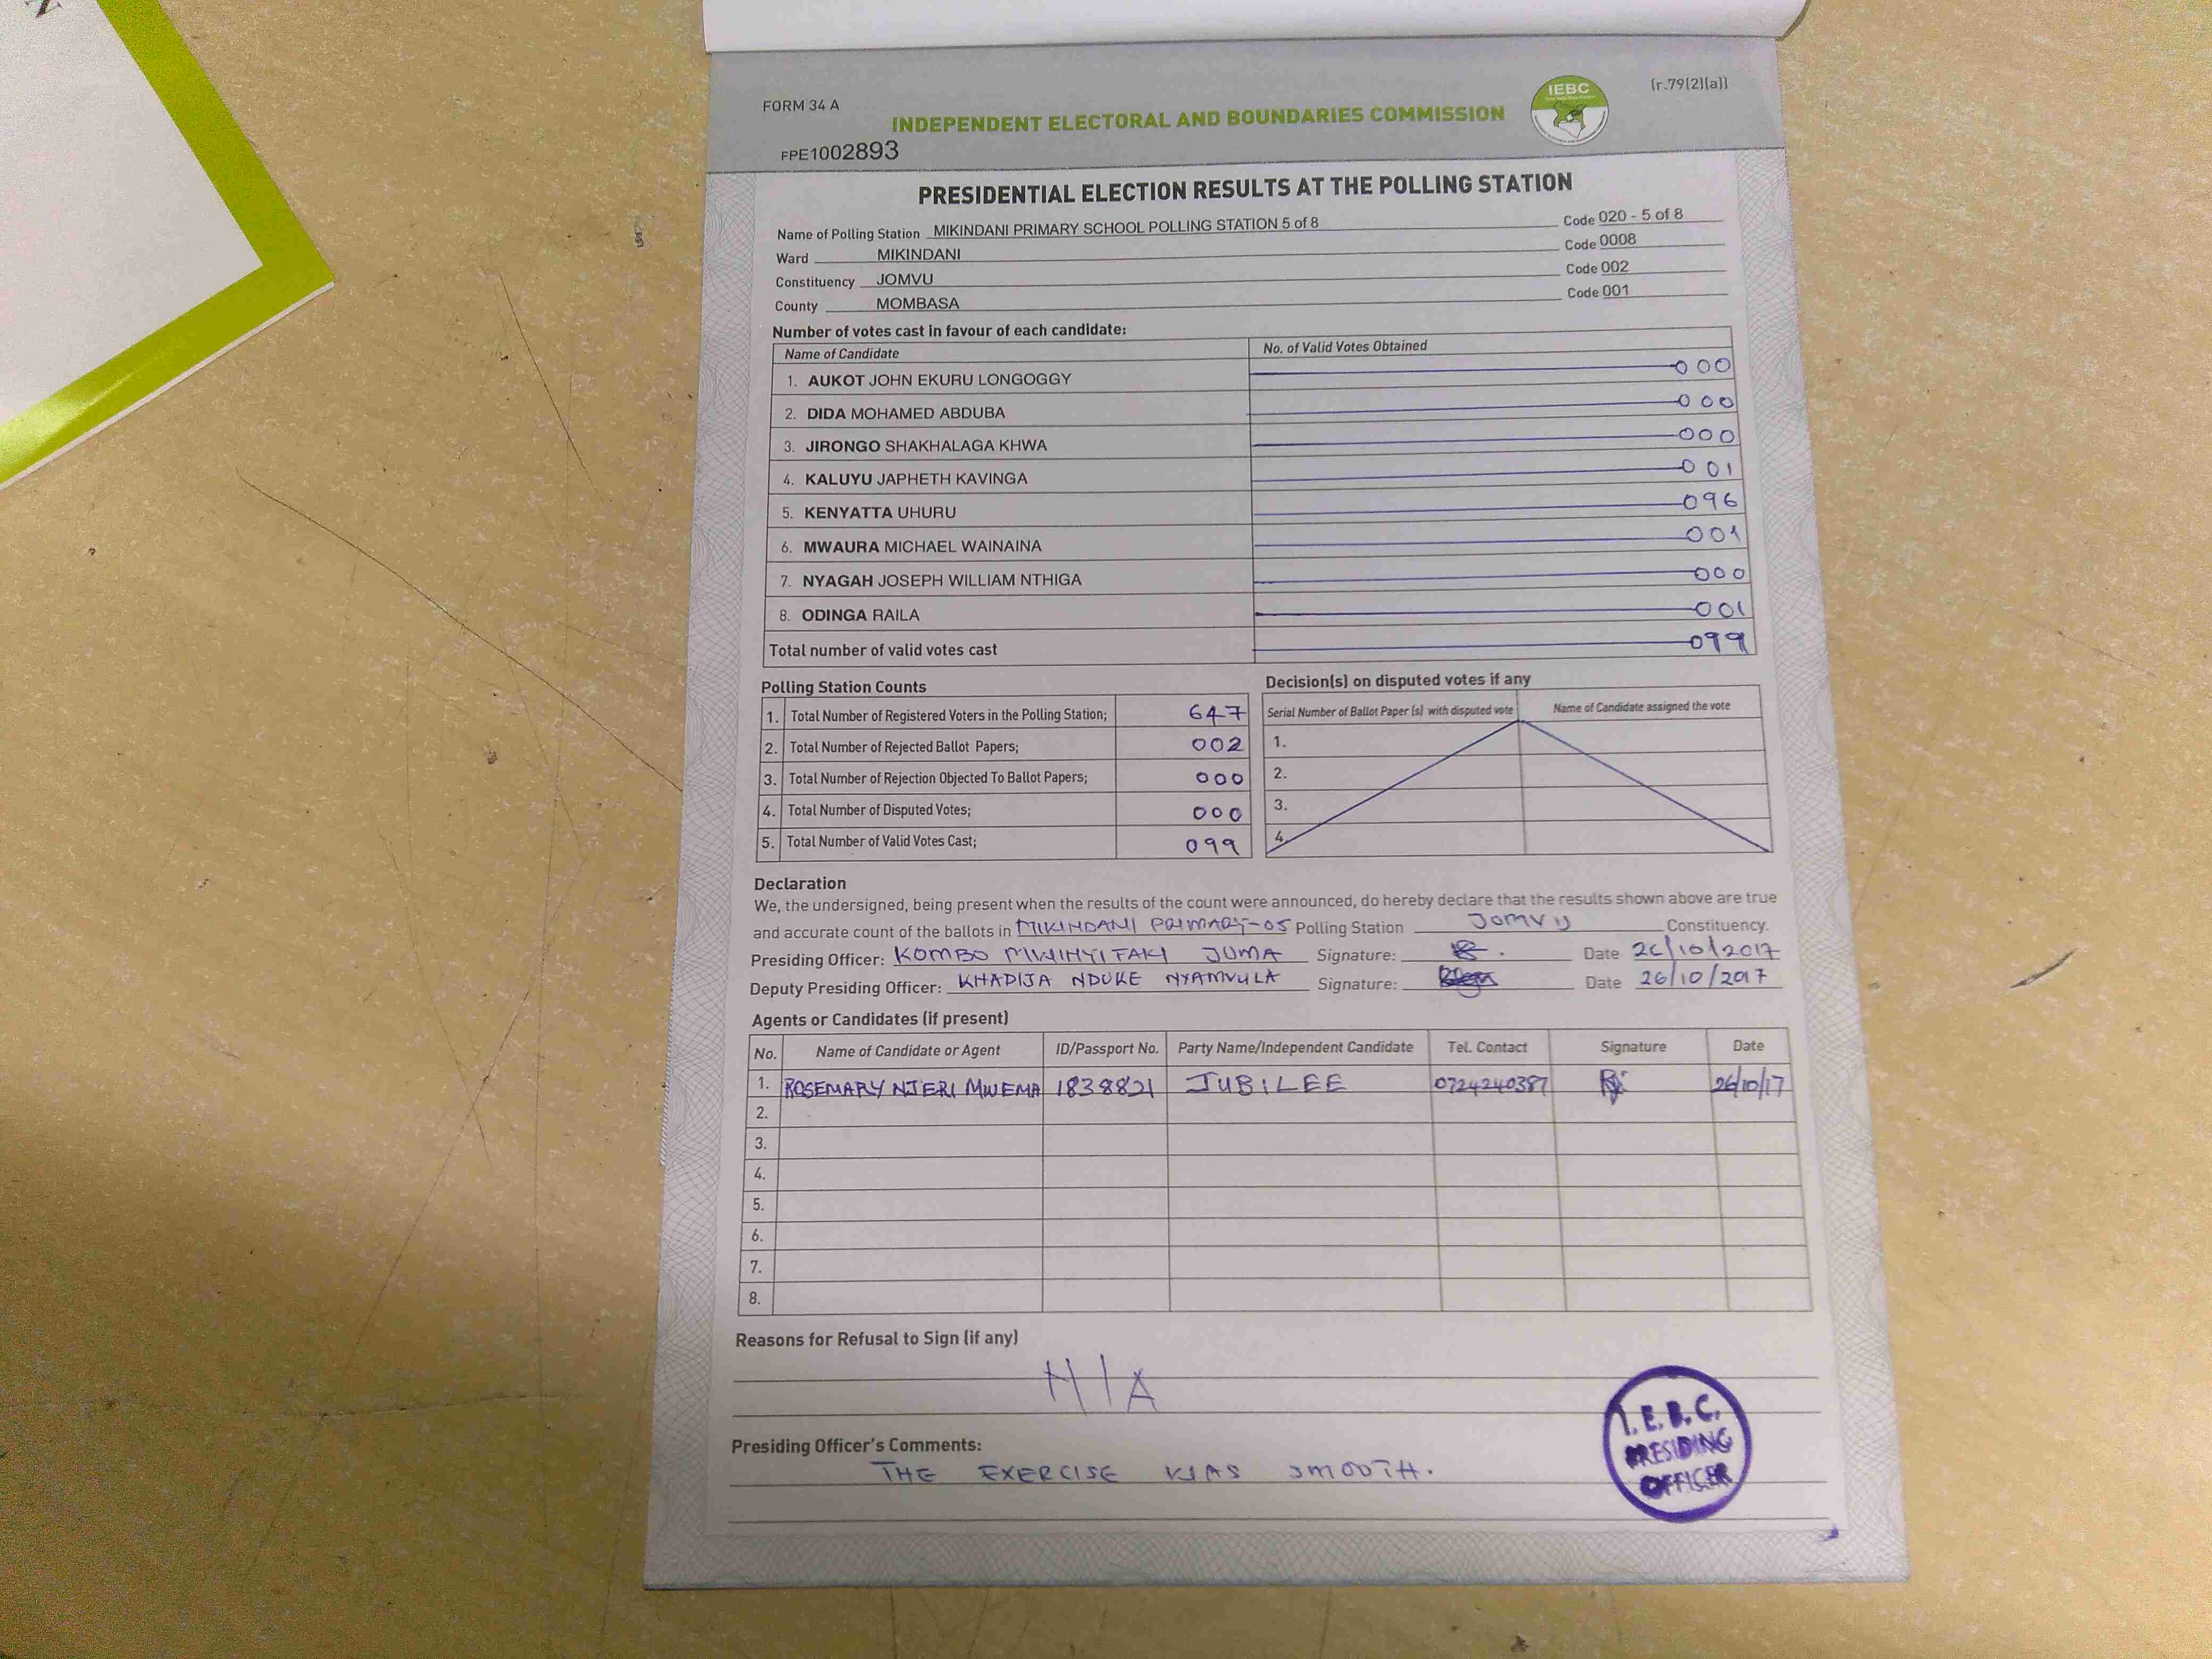 FORM 34 A
[r.79(2)(a)]
INDEPENDENT ELECTORAL AND BOUNDARIES COMMISSION
IEBC
FPE1002893
PRESIDENTIAL ELECTION RESULTS AT THE POLLING STATION
Name of Polling Station MIKINDANI PRIMARY SCHOOL POLLING STATION 5 of 8 Code 020 - 5 of 8
Ward MIKINDANI Code 0008
Constituency JOMVU Code 002
County MOMBASA Code 001
Number of votes cast in favour of each candidate:
Name of Candidate No. of Valid Votes Obtained
1. AUKOT JOHN EKURU LONGOGGY 000
2. DIDA MOHAMED ABDUBA 000
3. JIRONGO SHAKHALAGA KHWA 000
4. KALUYU JAPHETH KAVINGA 001
5. KENYATTA UHURU 096
6. MWAURA MICHAEL WAINAINA 001
7. NYAGAH JOSEPH WILLIAM NTHIGA 000
8. ODINGA RAILA 001
Total number of valid votes cast 099
Polling Station Counts
1. Total Number of Registered Voters in the Polling Station; 647
2. Total Number of Rejected Ballot Papers; 002
3. Total Number of Rejection Objected To Ballot Papers; 000
4. Total Number of Disputed Votes; 000
5. Total Number of Valid Votes Cast; 099
Decision(s) on disputed votes if any
Serial Number of Ballot Paper (s) with disputed vote Name of Candidate assigned the vote
1.
2.
3.
4.
Declaration
We, the undersigned, being present when the results of the count were announced, do hereby declare that the results shown above are true
and accurate count of the ballots in MIKINDANI PRIMARY-05 Polling Station JOMVU Constituency.
Presiding Officer: KOMBO MWINYIFAKI JUMA Signature: Date 26/10/2017
Deputy Presiding Officer: KHADIJA NDUKE NYAMVULA Signature: Date 26/10/2017
Agents or Candidates (if present)
No. Name of Candidate or Agent ID/Passport No. Party Name/Independent Candidate Tel. Contact Signature Date
1. ROSEMARY NJERI MWEMA 1838821 JUBILEE 0724240387 26/10/17
2.
3.
4.
5.
6.
7.
8.
Reasons for Refusal to Sign (if any)
N/A
Presiding Officer's Comments:
THE EXERCISE WAS SMOOTH.
I.E.B.C.
PRESIDING
OFFICER